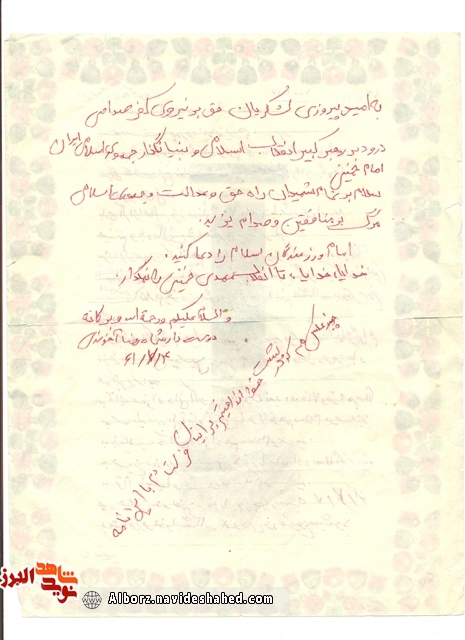 به امید پیروزی لشکریان حق بر نیروی کفر صدامی
درود بر رهبر کبیر انقلاب اسلامی و بنیانگذار جمهوری اسلامی ایران
امام خمینی
سلام بر تمام شهیدان راه حق و عدالت و جمهوری اسلامی
مرگ بر منافقین و صدام یزید.
امام و رزمندگان اسلام را دعا کنید.
خدایا، خدایا، تا انقلاب مهدی خمینی را نگهدار.
والسلام علیکم و رحمة الله و برکاته
دوست دار شما رضا
۶۱/۷/۴
چند عکس هم
فرستادم با این نامه
نوید شاهد البرز
Alborz.navideshahed.com